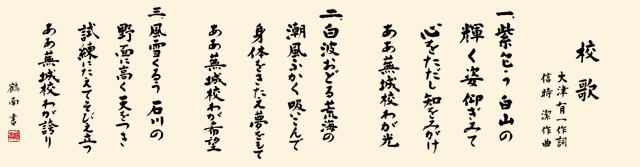 校歌
大津有一作詞
信時潔作曲
一、紫匂う白山の
輝く姿仰ぎみて
心をただし知をみがけ
ああ蕪城校わが光
二、白波おどる荒海の
潮風ふかく吸いこんで
身体をきたえ夢をもて
ああ蕪城校わが希望
三、風雪くるう石川の
野面に高く天をつき
試練にたえてそびえ立つ
ああ蕪城校わが誇り
鶴南書